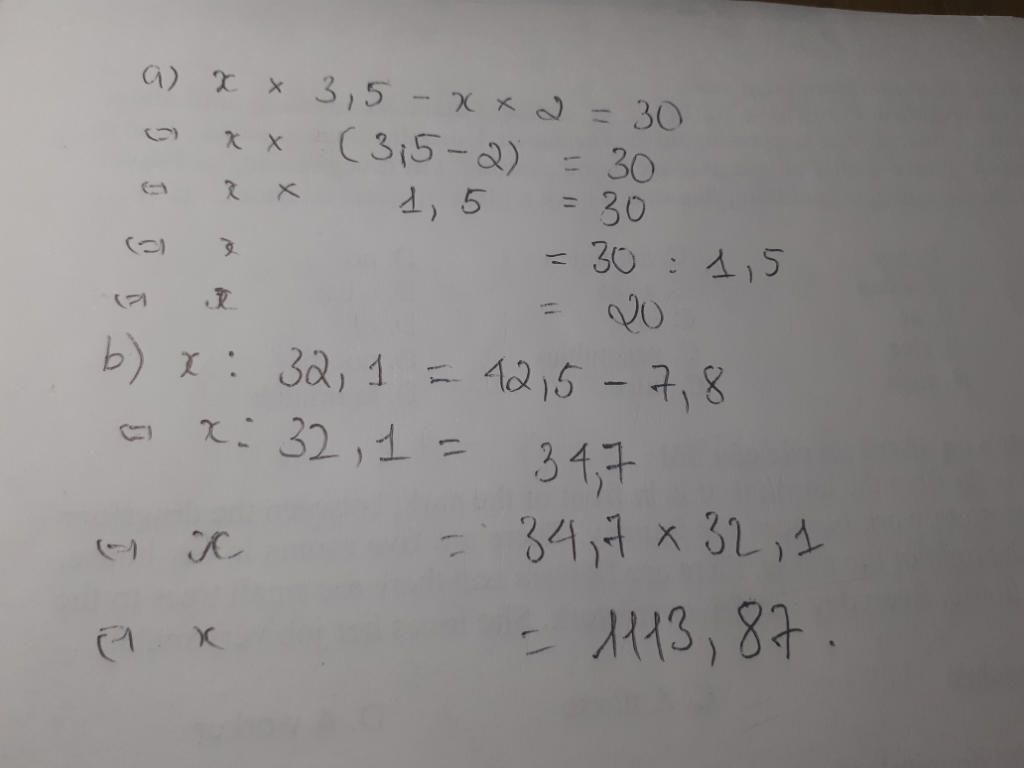 a) x × 3,5 - x × 2 = 30
⇔ x × (3,5 - 2) = 30
⇔ x × 1,5 = 30
⇔ x = 30 : 1,5
⇔ x = 20
b) x : 32,1 = 42,5 - 7,8
⇔ x : 32,1 = 34,7
⇔ x = 34,7 × 32,1
⇔ x = 1113,87.